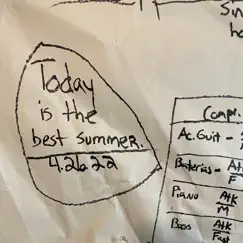 Sin
ho
Today
is the
best summer.
4.26.22
Compr.
Ac. Guit - 
Baterias - Atk
F
Piano Atk
M
Bass Atk